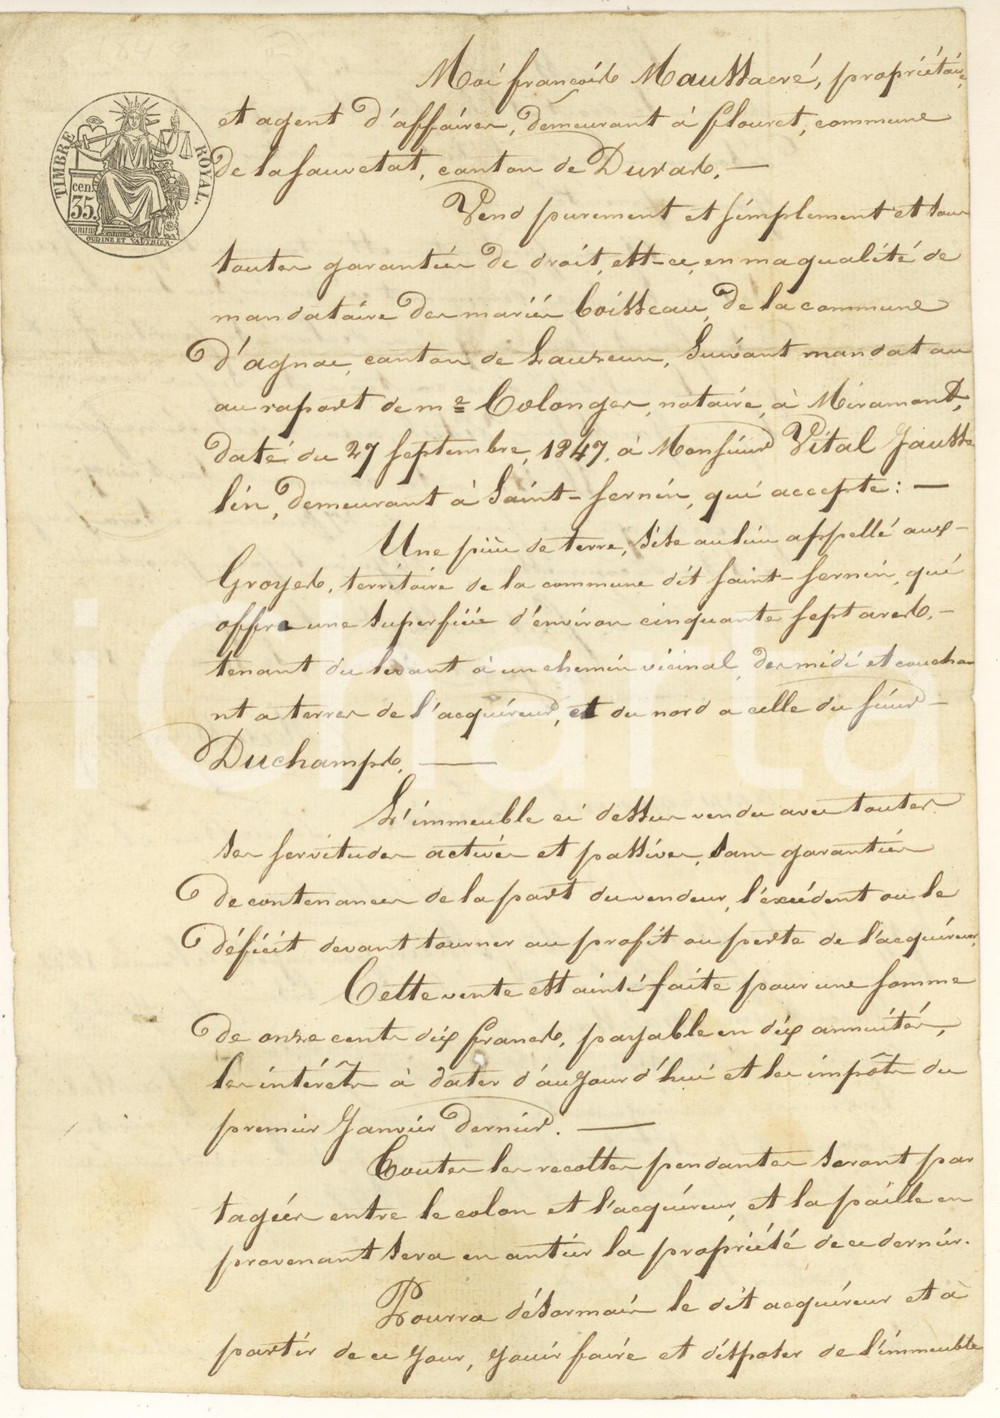 Moi françois Maussacré, propriétaire
et agent d'affaires, demeurant à flouret, commune
de la sauvetat, canton de Duras. —
Vend purement et simplement et sous
toutes garanties de droit, est-ce, en ma qualité de
mandataire des mariés Coisseau, de la commune
d'agnac, canton de Lauzeun, suivant mandat au
au raport de me Colonges, notaire, à Miramont,
daté du 27 septembre, 1847, à Monsieur Vital Jausse
lin, demeurant à Saint-sernin, qui accepte : —
Une pièce de terre, sise au lieu appellé aux-
Groyes, territoire de la commune dit saint-sernin, qui
offre une superficie d'environ cinquante sept ares. -
tenant du levant à un chemin vicinal, des midi et coucha-
nt a terres de l'acquéreur, et du nord a celle du sieur -
Duchamps. —
L'immeuble ci dessus vendu avec toutes
ses servitudes actives et passives, sans garanties
de contenances de la part du vendeur, l'éxcédent ou le
déficit devant tourner au profit ou perte de l'acquéreur,
Cette vente est ainsi faite pour une somme
de onze cents dix francs, payable en dix annuités,
les intérêts à dater d'aujourd'hui et les impôts du
premier Janvier dernier. —
Toutes les recoltes pendantes seront par
tagées entre le colon et l'acquéreur, et la paille en
provenant sera en antier la propriété de ce dernier.
Pourra désormais le dit acquéreur et à
partir de ce jour, jouir faire et disposer de l'immeuble
TIMBRE ROYAL.
cen. 35.